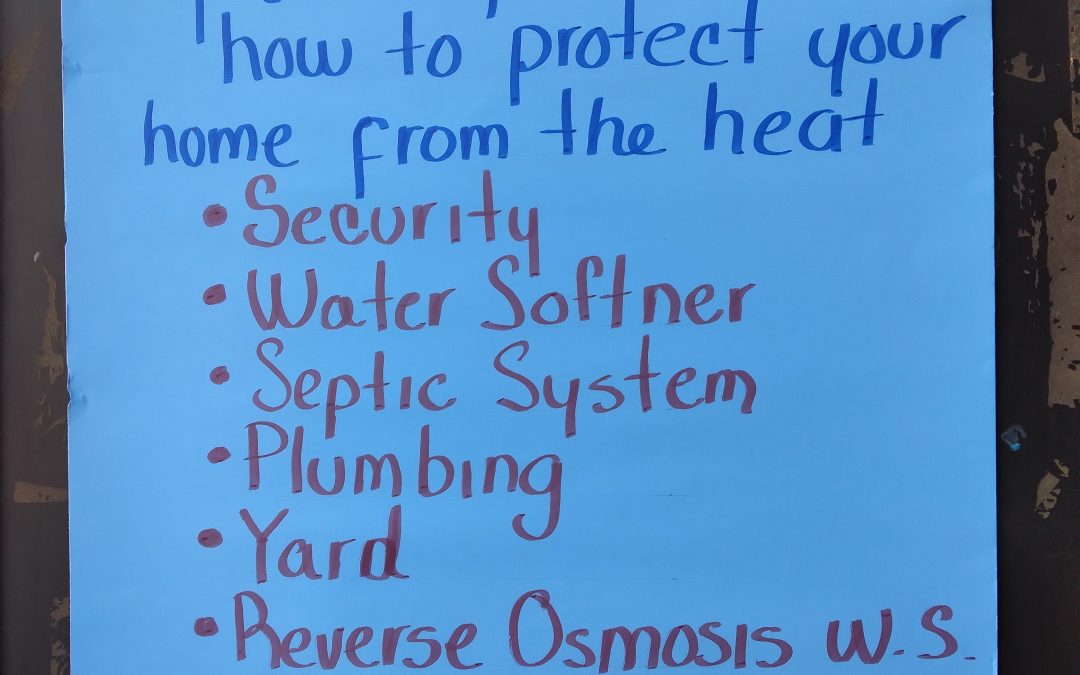 how to protect your
home from the heat
• Security
• Water Softner
• Septic System
• Plumbing
• Yard
• Reverse Osmosis W.S.